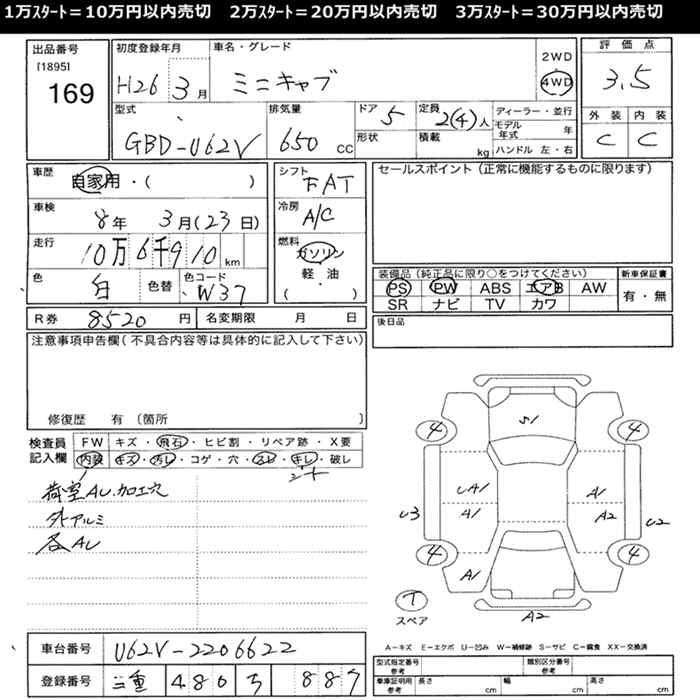 1万ｽﾀｰﾄ＝10万円以内売切　2万ｽﾀｰﾄ＝20万円以内売切　3万ｽﾀｰﾄ＝30万円以内売切
出品番号
[1895]
169
初度登録年月
H26 3月
車名・グレード
ミニキャブ
2WD
4WD
評価点
3.5
型式
GBD-U62V
排気量
650 CC
ドア 5
形状
定員 2(4)人
積載 kg
ディーラー・並行
モデル年式 年
ハンドル 左・右
外装 内装
C C
車歴 自家用・( )
シフト FAT
セールスポイント(正常に機能するものに限ります)
車検 8年 3月(23日)
冷房 A/C
走行 10万6千910km
燃料
ガソリン
軽・油
( )
色 白 色替 色コード W37
装備品(純正品に限り○をつけてください)
PS PW ABS エアB AW
SR ナビ TV カワ
新車保証書
有・無
R券 8520円 名変期限 月 日
後日品
注意事項申告欄(不具合内容等は具体的に記入して下さい)
修復歴 有 〔箇所 〕
検査員記入欄
FW キズ・飛石・ヒビ割・リペア跡・X要
内装 キズ・汚レ・コゲ・穴・スレ・キレ・破レ
シート
荷室AU.加工穴
外アルミ
各AU
4 S1 4
UA1 A1
U3 A1 A2 U2
4 A1 4
T
スペア
A2
A－キズ E－エクボ U－凹み W－補修跡 S－サビ C－腐食 XX－交換済
車台番号 U62V-2206622
登録番号 三重 480 う 887
型式指定番号 参考 類別区分番号 参考
車庫証明用 参考 長さ cm 幅 cm 高さ cm